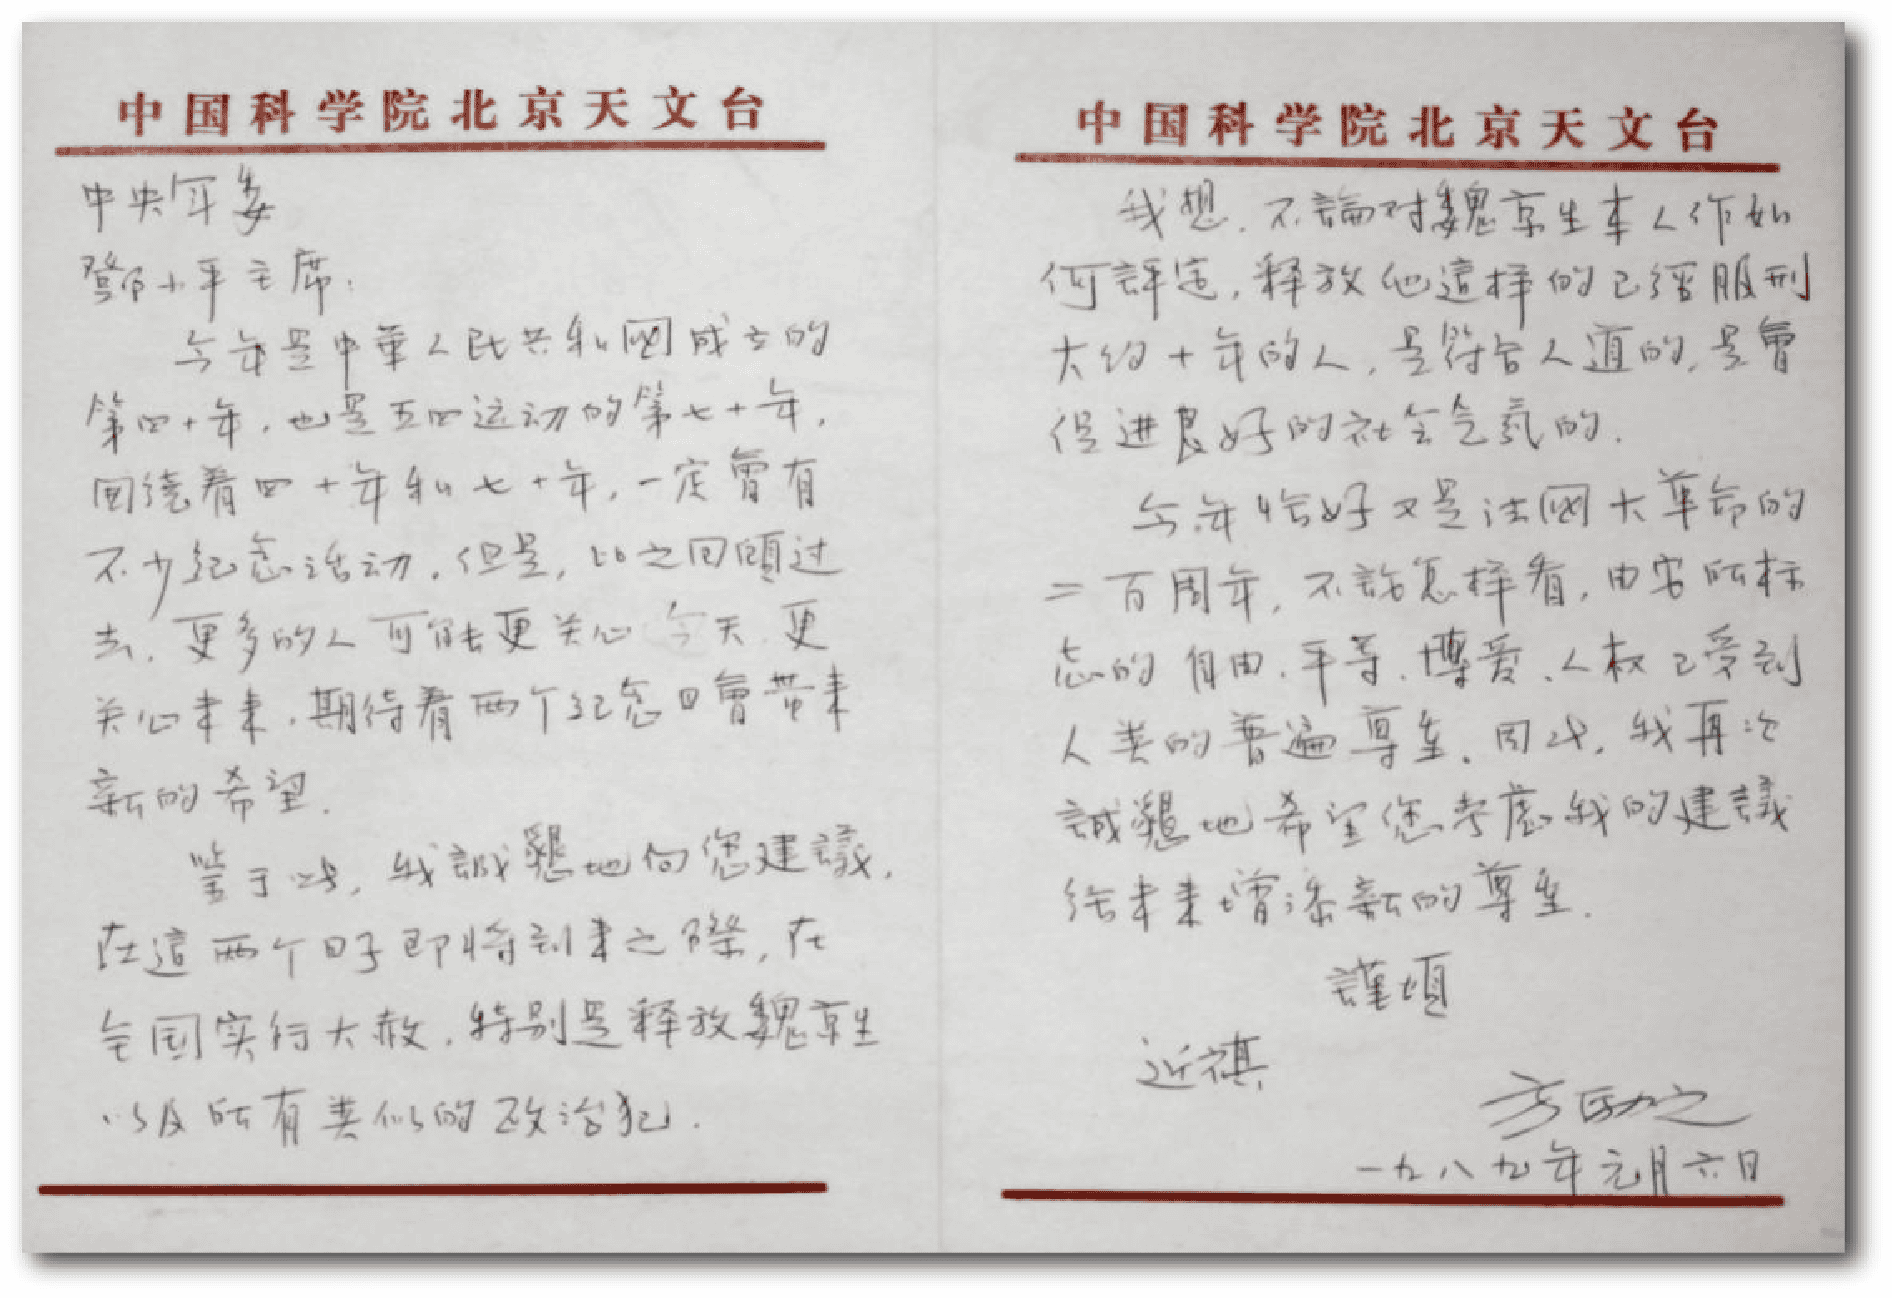 中国科学院北京天文台
中央军委
鄧小平主席：
今年是中華人民共和國成立的
第四十年，也是五四运动的第七十年，
围绕着四十年和七十年，一定會有
不少纪念活动，但是，比之回顧过
去，更多的人可能更关心今天，更
关心未来，期待着两个纪念日會带来
新的希望．
鉴于此，我誠懇地向您建議，
在這两个日子即将到来之際，在
全国实行大赦，特别是释放魏京生
以及所有类似的政治犯．
中国科学院北京天文台
我想，不論对魏京生本人作如
何評定，释放他這样的已經服刑
大约十年的人，是符合人道的，是會
促进良好的社会气氛的．
今年恰好又是法國大革命的
二百周年，不論怎样看，由它所标
志的自由、平等、博爱、人权已受到
人类的普遍尊重．因此，我再次
誠懇地希望您考虑我的建議
给未来增添新的尊重．
謹頌
近祺
方励之
一九八九年元月六日